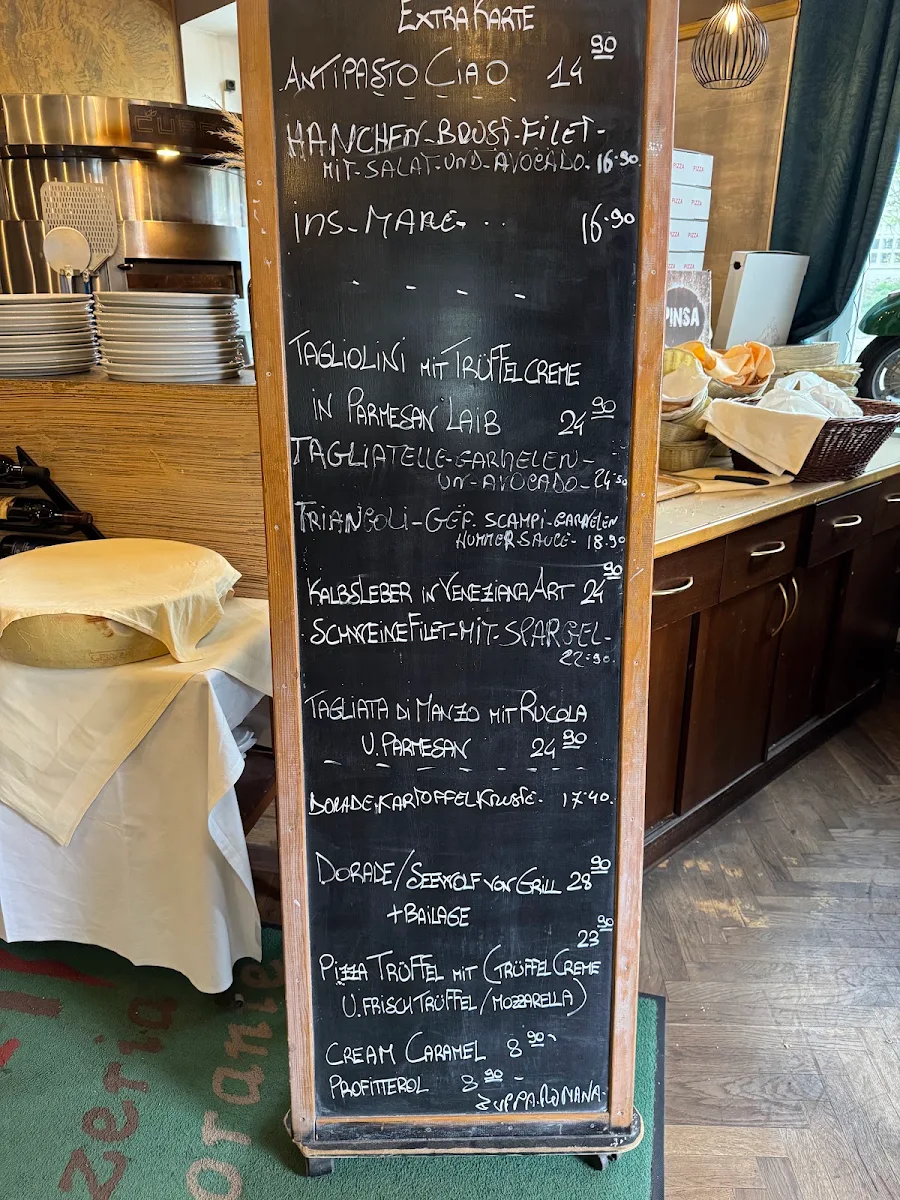 EXTRAKARTE
ANTIPASTO CIAO 14 90
HÄNCHEN-BRUST-FILET-
MIT-SALAT-UND-AVOCADO. 16.90
INS-MARE- .. 16.90
TAGLIOLINI MIT TRÜFFELCREME
IN PARMESAN LAIB 24 90
TAGLIATELLE-GARNELEN-
UN-AVOCADO-24.50
TRIANGOLI-GEF. SCAMPI-GARNELEN
HUMMER-SAUCE- 18.90
KALBSLEBER IN VENEZIANA ART 24 90
SCHWEINEFILET-MIT-SPARGEL-
22.90.
TAGLIATA DI MANZO MIT RUCOLA
U. PARMESAN 24 90
DORADE,KARTOFFELKRUSTE. 17.40.
DORADE/SEEWOLF VON GRILL 28 90
+BAILAGE
23 90
PIZZA TRÜFFEL MIT (TRÜFFELCREME
U. FRISCH TRÜFFEL/MOZZARELLA)
CREAM CARAMEL 8 90
PROFITTEROL 8 90 -
ZUPPA.ROMANA.
PIZZA
PINSA
zeria